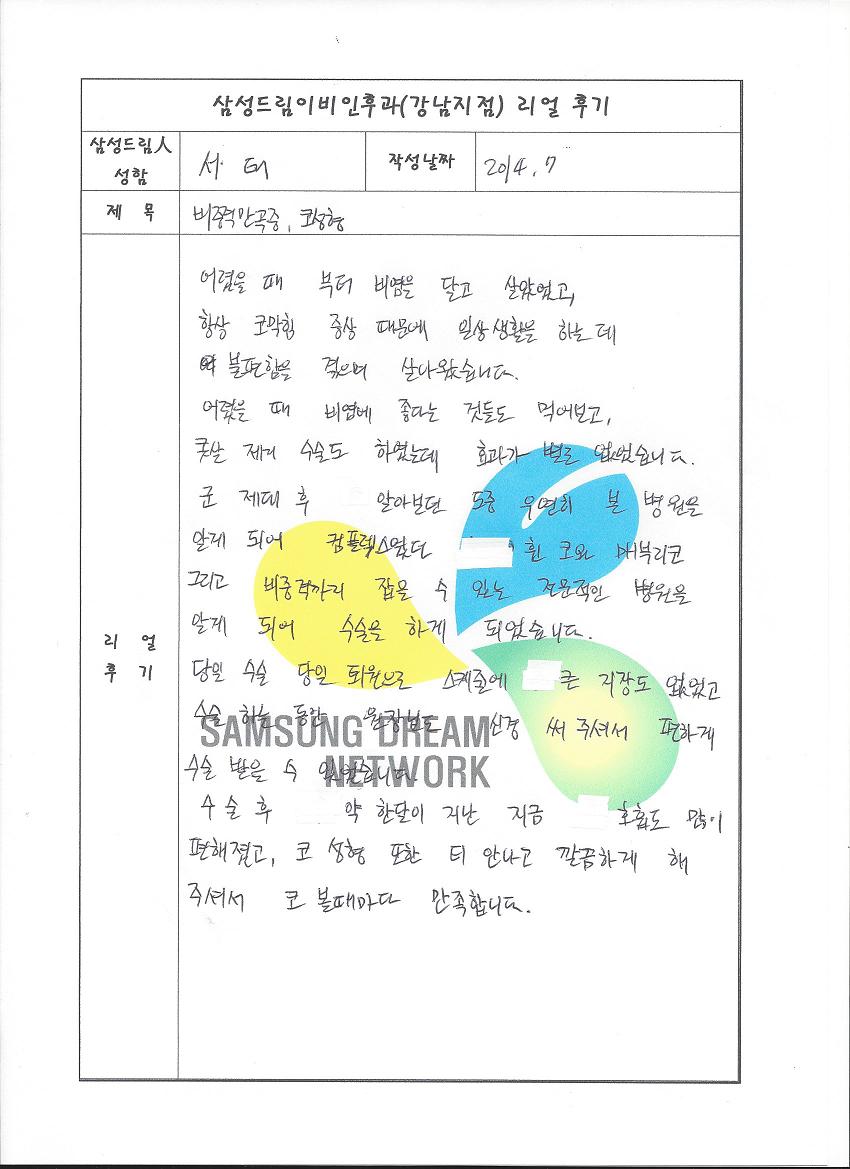 삼성드림이비인후과(강남지점) 리얼 후기
삼성드림人 성함
서.
작성날짜
2014. 7
제 목
비중격만곡증, 코성형
리 얼
후 기
어렸을 때 부터 비염을 달고 살았었고,
항상 코막힘 증상 때문에 일상생활을 하는데
불편함을 겪으며 살아왔습니다.
어렸을 때 비염에 좋다는 것들도 먹어보고,
콧살 제거 수술도 하였는데 효과가 별로 없었습니다.
군 제대 후 알아보던 도중 우연히 본 병원을
알게 되어 컴플렉스였던 휜 코와 매부리코
그리고 비중격까지 잡을 수 있는 전문적인 병원을
알게 되어 수술을 하게 되었습니다.
당일 수술 당일 퇴원으로 스케줄에 큰 지장도 없었고
수술 하는 동안 신경 써 주셔서 편하게
수술 받을 수 있었습니다.
수술 후 약 한달이 지난 지금 호흡도 많이
편해졌고, 코 성형 또한 티 안나고 깔끔하게 해
주셔서 코 볼때마다 만족합니다.
SAMSUNG DREAM
NETWORK